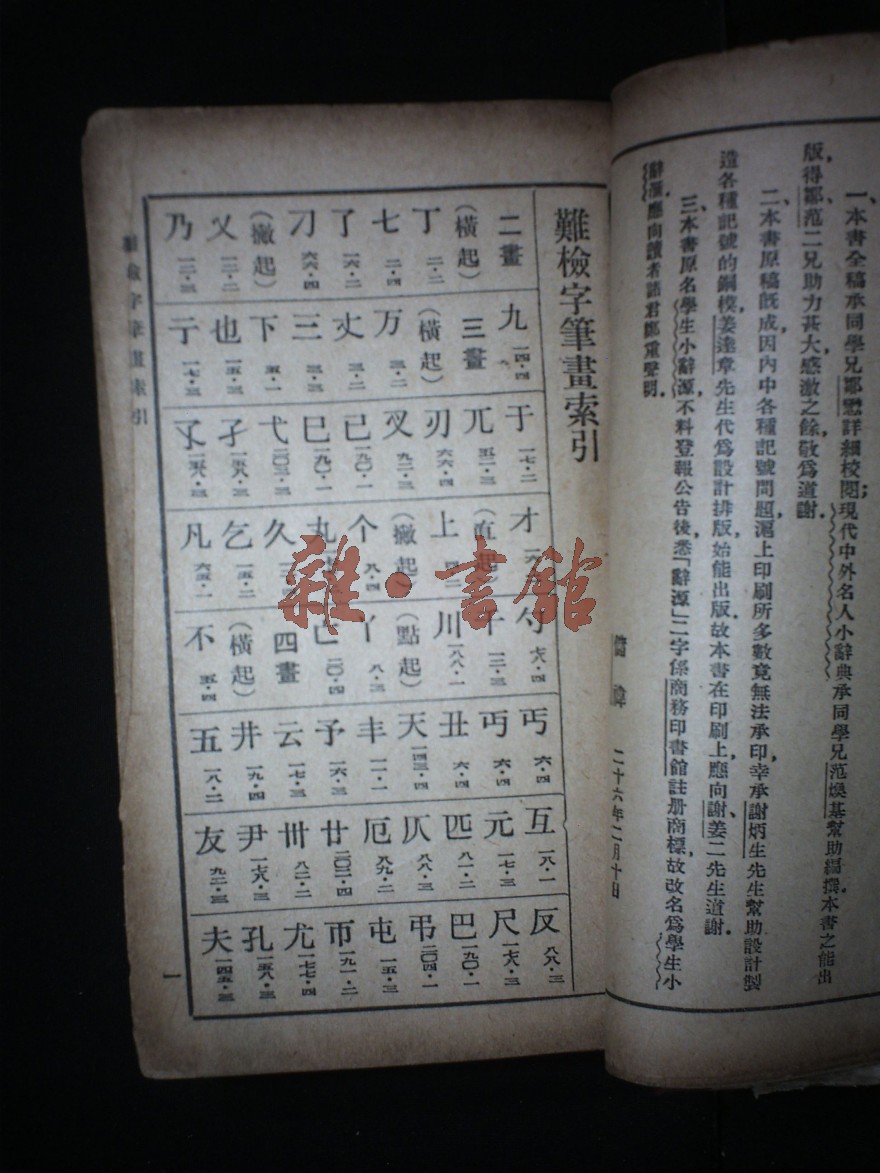 一、本書全稿承同學兄鄒懋詳細校閱；現代中外名人小辭典承同學兄范煥基幫助編撰。本書之能出
版，得鄒、范二兄助力甚大，感激之餘，敬爲道謝。
二、本書原稿旣成，因內中各種記號問題，滬上印刷所多數竟無法承印，幸承謝炳生先生幫助設計製
造各種記號的銅模，姜達章先生代爲設計排版，始能出版。故本書在印刷上，應向謝、姜二先生道謝。
三、本書原名學生小辭源，不料登報公告後，悉「辭源」二字係商務印書館註册商標，故改名爲學生小
辭匯。應向讀者諸君鄭重聲明。
二十六年二月十日
難檢字筆畫索引
二畫
(橫起)
丁 二·二
七 二·四
了 一六·二
刀 六六·四
(撇起)
乂 一二·二
乃 一二·三
九 一四·四
三畫
(橫起)
万 三·二
丈 三·三
三 三·三
下 五·一
也 一五·三
亍 一七·三
于 一七·二
兀 五二·三
刃 六六·四
叉 九二·三
已 一九〇·一
巳 一九〇·一
弋 二〇三·三
孑 一五八·三
孓 一五八·三
才
(直起)
上 四·二
(撇起)
个 八·四
丸
久
乞 一五·二
凡 六五·一
勺 七八·四
千
川 一八八·一
(點起)
丫 八·三
亡 二〇·四
四畫
(橫起)
不 五·四
丐 六·四
丏 六·四
丑 六·四
天 一四三·四
丰 一一·一
予 一六·三
云 一七·三
井 一九·四
五 一八·二
互 一八·一
元
匹 八一·二
仄 八八·三
厄 八九·二
廿 二〇二·四
卅 八二·二
尹 一七六·三
友 九二·三
反 八八·三
尺 一七六·三
巴 一九〇·一
弔 二〇四·一
屯 一五·三
帀 一九一·二
尤 一七七·四
孔 一五八·三
夫 一四五·三
難檢字筆畫索引
一
雜·書館